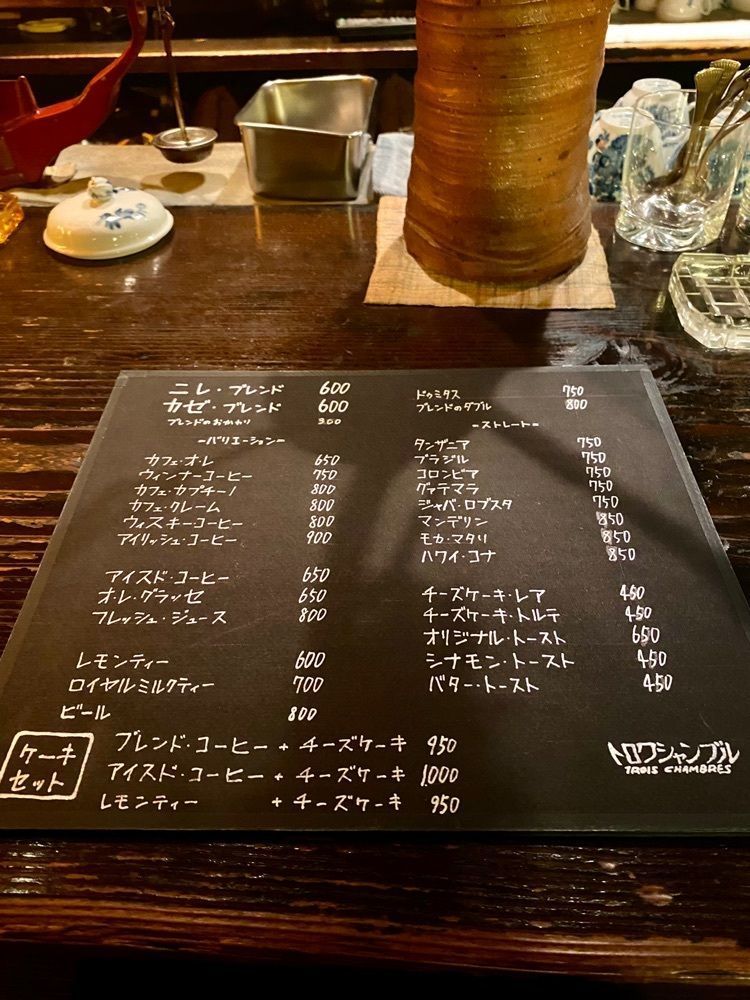 ニレ・ブレンド 600
カゼ・ブレンド 600
ブレンドのおかわり 300
-バリエーション-
カフェ・オ・レ 650
ウィンナーコーヒー 750
カフェ・カプチーノ 800
カフェ・クレーム 800
ウィスキーコーヒー 800
アイリッシュ・コーヒー 900
アイスド・コーヒー 650
オ・レ・グラッセ 650
フレッシュ・ジュース 800
レモンティー 600
ロイヤルミルクティー 700
ビール 800
ドゥミタス 750
ブレンドのダブル 800
-ストレート-
タンザニア 750
ブラジル 750
コロンビア 750
グァテマラ 750
ジャバ・ロブスタ 750
マンデリン 850
モカ・マタリ 850
ハワイ・コナ 850
チーズケーキ・レア 450
チーズケーキ・トルテ 450
オリジナル・トースト 650
シナモン・トースト 450
バター・トースト 450
ケーキ
セット
ブレンド・コーヒー + チーズケーキ 950
アイスド・コーヒー + チーズケーキ 1,000
レモンティー + チーズケーキ 950
トロワシャンブル
TROIS CHAMBRES